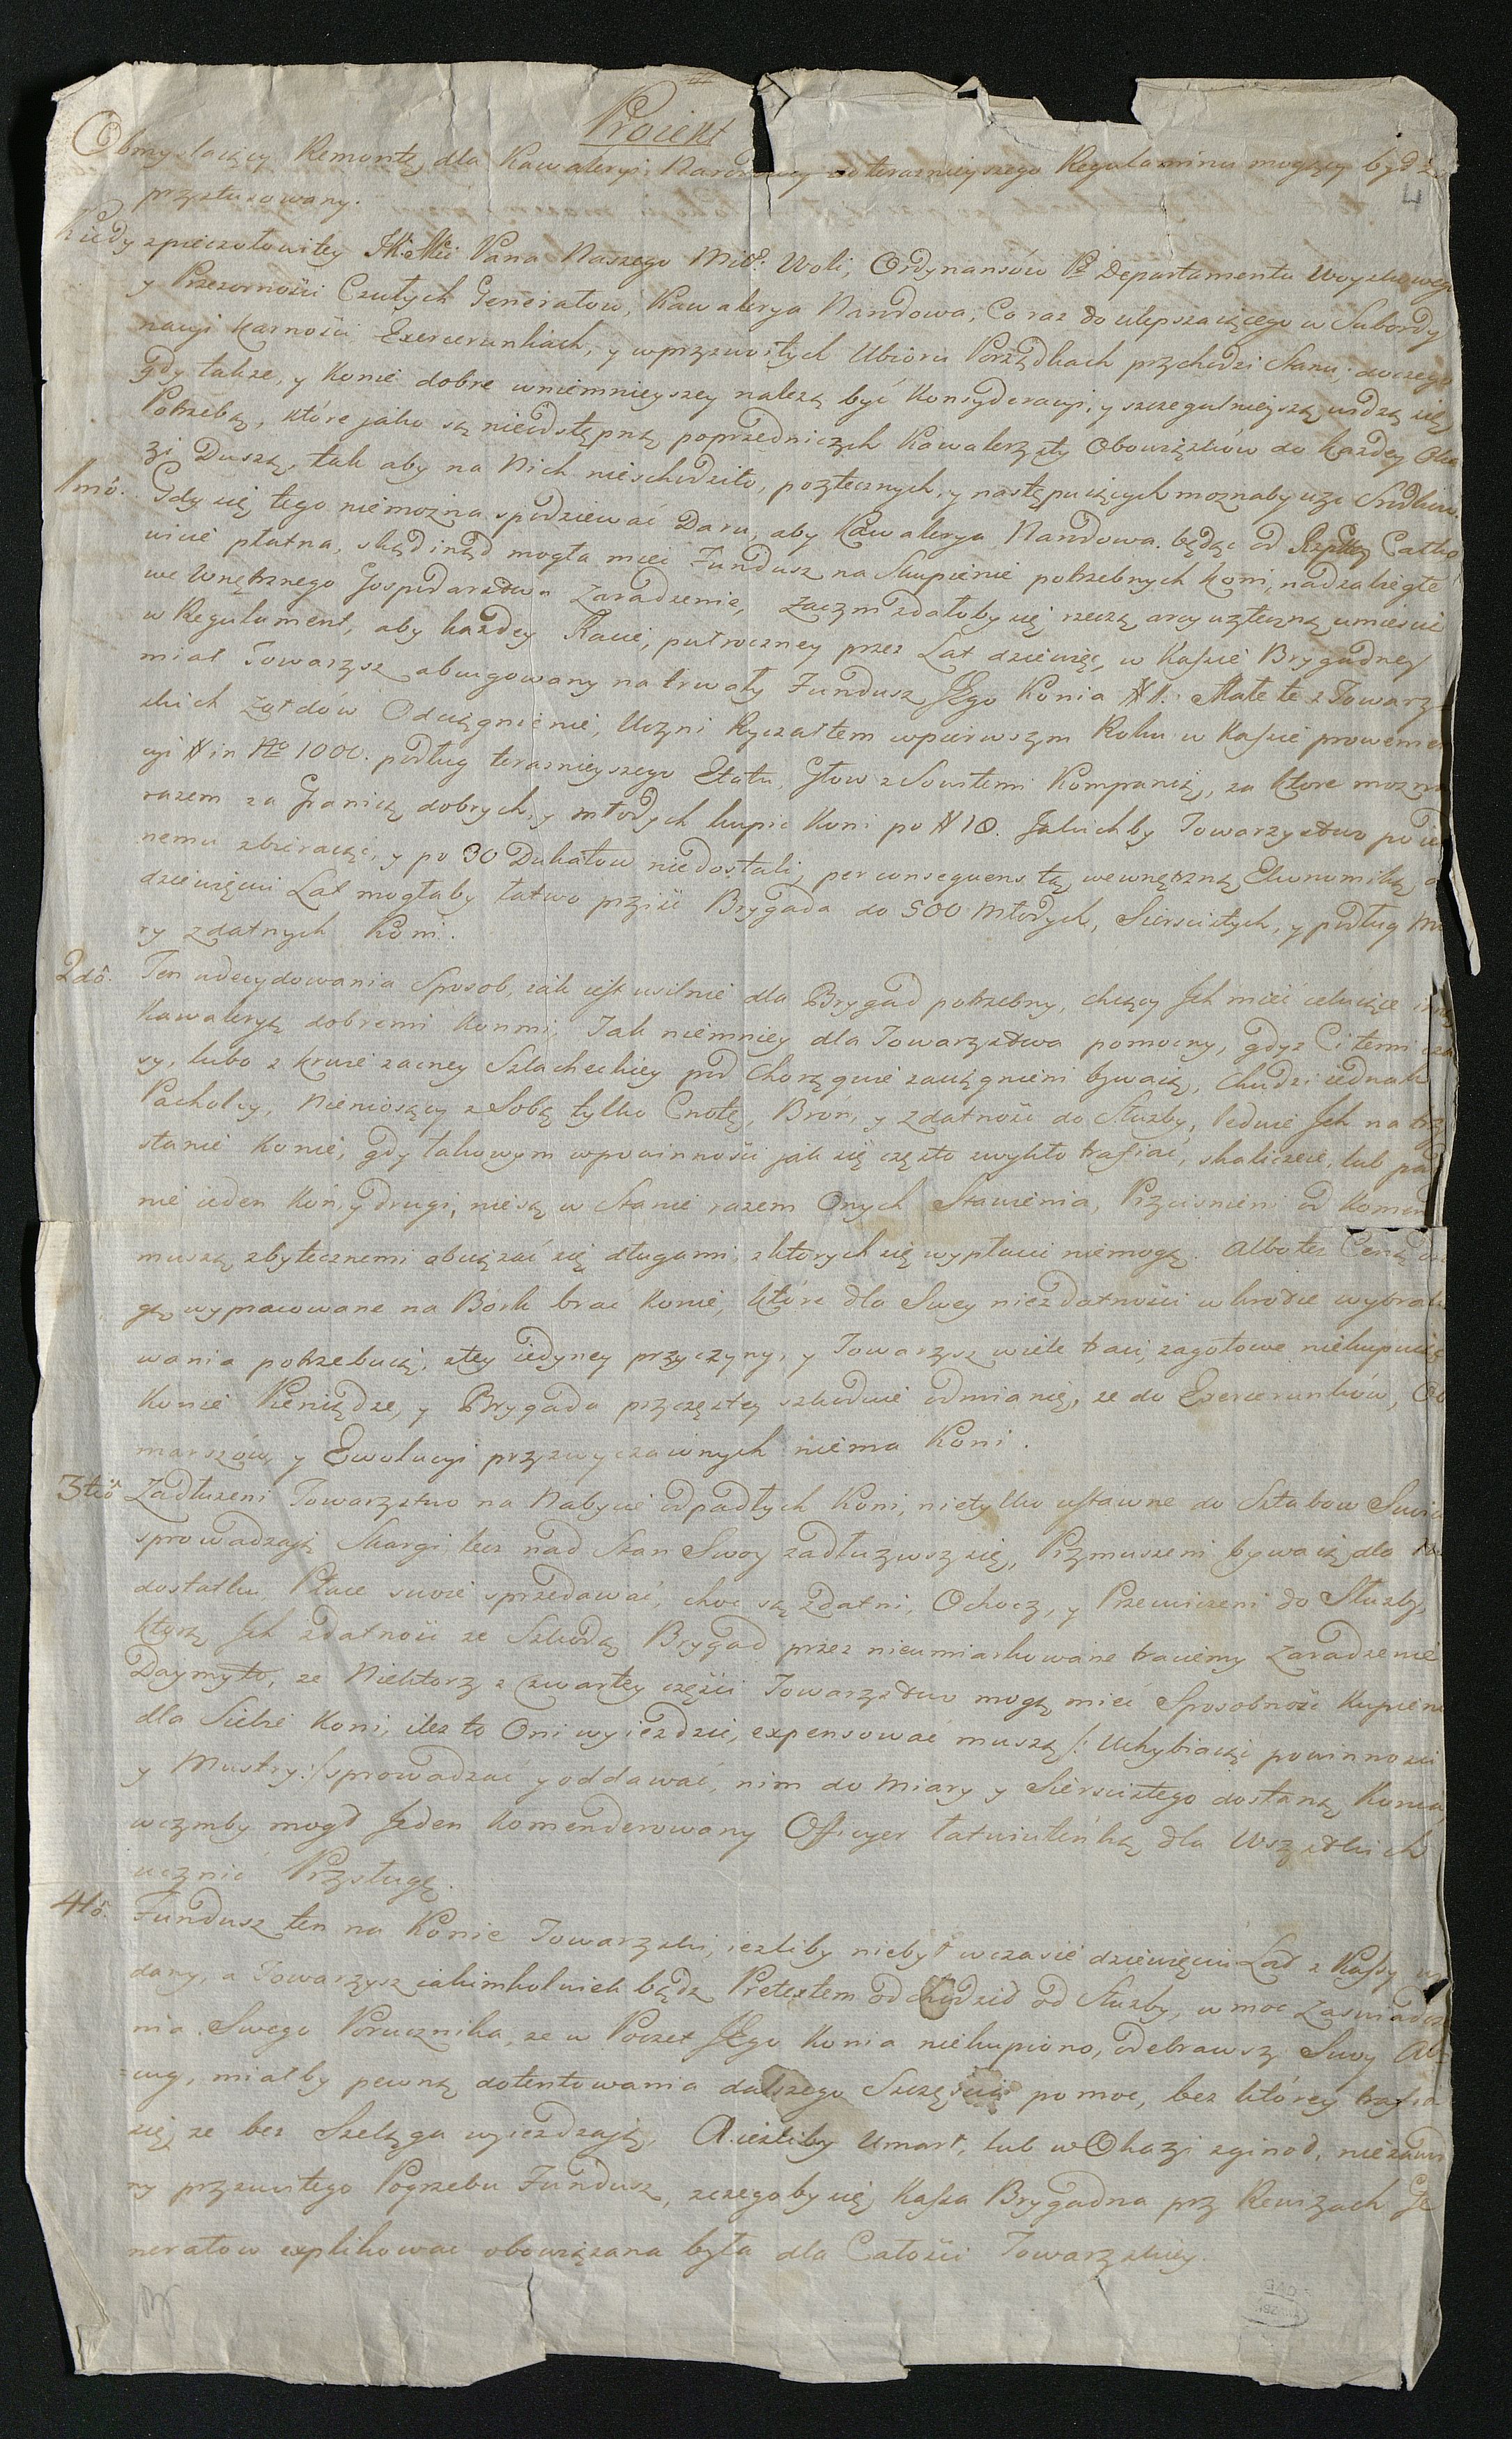 Proiekt
Obmyslaiący Remontę dla Kawaleryi Narodowey od teraznieyszego Regulaminu mogący bydź
przystosowany.
Kiedy zpieczołowitey JKMci Pana Naszego Miłł: Woli, Ordynansów Departamentu Woyskowego
y Przezorności Czułych Generałow, Kawalerya Narodowa, Coraz do ulepszaiącego w Subordy
nacyi Karności Exercerunkach, y wprzyzwoitych Ubioru Porządkach przychodzi Stanu; do czego
gdy takze, y Konie dobre wniemnieyszey nalezą być Konsyderacyi, y szczegulnieyszą widzą się
Potrzebą, które jako są nieodstępną poprzedniczych Kawalerzysty Obowiązków do każdey Oka
zyi Duszą, tak aby na Nich nieschodziło, pozytecznych, y następuiących moznaby uzyć Srodków.
1mo. Gdy się tego niemożna spodziewać Daru, aby Kawalerya Narodowa będąc od Rzpltey Całko
wicie płatna, skąd inąd mogła mieć Fundusz na Skupienie potrzebnych Koni, nad zabiegłe
we Wnętrznego Gospodarstwa Zaradzenie, Zaczym zdałoby się rzeczą arcyuzyteczną umieścić
w Regulament, aby każdey Racie, pułroczney przez Lat dziewięć, w Kassie Brygadney
miał Towarzysz abcugowany na trwały Fundusz Jego Konia # 1. Małe te z Towarzy
skich Zołdów Odciągnienie, Uczyni Ryczałtem wpierwszym Roku w Kassie prowenien
cyi # in No 1000. podług teraznieyszego Etatu, Głow z Szostemi Kompanią, za ktore mozna
razem za Granicą dobrych, y młodych kupić Koni po # 18. Jakichby Towarzystwo po ied
nemu zbieraiąc, y po 30 Dukatow niedostali, per consequens tą wewnętrzną Ekonomiką
dziewięciu Lat mogłaby łatwo przyiść Brygada do 500 Młodych, Sierscistych, y podług Mia
ry zdatnych Koni.
2do. Ten udecydowania Sposob, jak iest usilnie dla Brygad potrzebny, chcący Jch mieć celuiące
Kawaleryą dobremi Konmi, Tak niemniey dla Towarzystwa pomocny, gdyz Ci temi cza
sy, lubo z krwie zacney Szlacheckiey pod Chorągwie zaciągnieni bywaią, Chudzi iednak
Pachołcy, Nieniosący z Sobą tylko Cnotę, Broń, y zdatność do Słuzby, ledwie Jch na
stanie Konie, gdy takowym wpowinności jak się często zwykło trafiać, skaliczeie, lub pad
nie ieden Koń, y drugi, niesą w Stanie razem Onych Stawienia, Przycisnieni od Komend
muszą zbytecznemi obciązać się długami, z których się wypłacić niemogą. Albo tez
wypracowane na Bork brać Konie, które dla Swey niezdatności wkrotce wybrako
wania potrzebuią, ztey iedyney przyczyny, y Towarzysz wiele traci, zagotowe niekupuiąc
Konie Pieniądze, y Brygada przyczęstey szkoduie odmianie, ze do Exercerunków,
marszów, y Ewolucyi przyzwyczaionych niema Koni.
3tio Zadłuzeni Towarzystwo na Nabycie odpadłych Koni, nietylko ustawne do Sztabow
sprowadzają Skargi lecz nad Stan Swoy zadłuzywszy się, Przymuszeni bywaią dla
dostatku Place swoie sprzedawać, choć są Zdatni, Ochoczy, y Przeuczeni do Słuzby,
ktorzy Jch zdatność ze Szkodą Brygad przez nieumiarkowane traciemy Zaradzenie
Daymyto, ze Niektorzy z Czwartey części Towarzystwo mogą mieć Sposobność Kupienia
dla Siebie Koni, ilez to Oni wyiezdzić, expensować muszą /: Uchybiaiąc powinności
y Mustry:/ sprowadzać y oddawać, nim do Miary y Sierscistego dostaną Konia,
wczymby mogł Jeden Komenderowany Officyer łatwiuteńką dla Wszystkich
uczynić Przysługę.
4to. Fundusz ten na Konie Towarzyski, iezliby niebył wczasie dziewięciu Lat z Kassy wy
dany, a Towarzysz iakimkolwiek bądz Pretextem odchodził od Słuzby, w moc Zaswiadcze
nia Swego Porucznika, ze w Poczet Jego Konia niekupiono, odebrawszy Swoy Ab
cug, miałby pewną dotentowania dalszego Szczęścia pomoc, bez którey trafia
się ze bez Szeląga wyiezdzają, A iezliby Umarł, lub w Okazyi zginoł,
ry przzwoitego Pogrzebu Fundusz, zczegoby się Kassa Brygadna przy Rewizach Ge
nerałow explikować obowiązana była dla Całości Towarzyskiey.